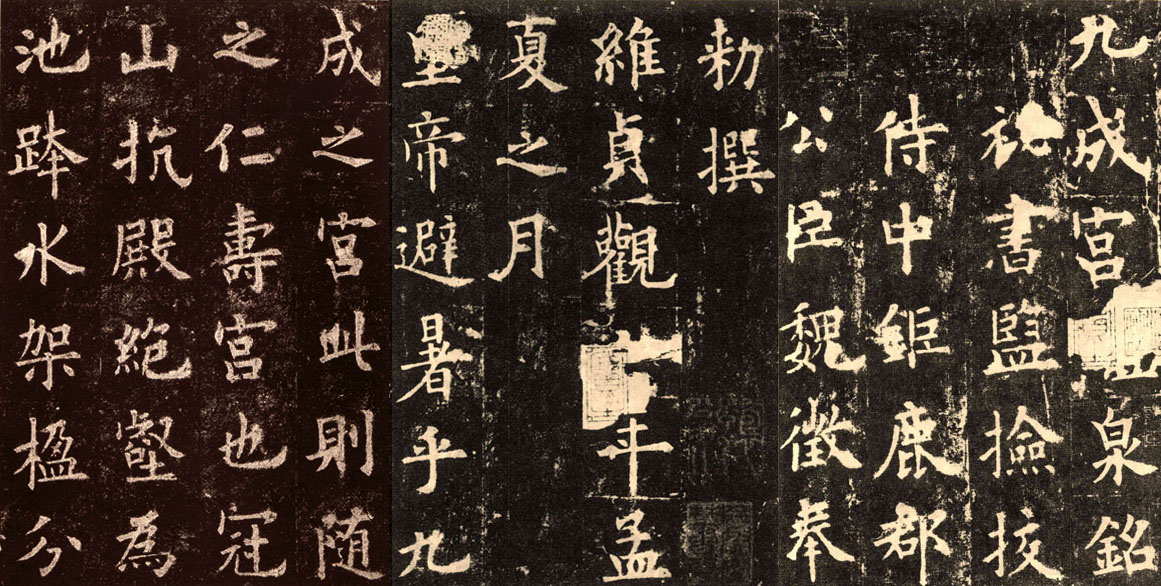 九成宮醴泉銘
祕書監撿挍
侍中鉅鹿郡
公臣魏徵奉
勑撰
維貞觀六年孟
夏之月
皇帝避暑乎九
成之宮此則隨
之仁壽宮也冠
山抗殿絕壑為
池跨水架楹分